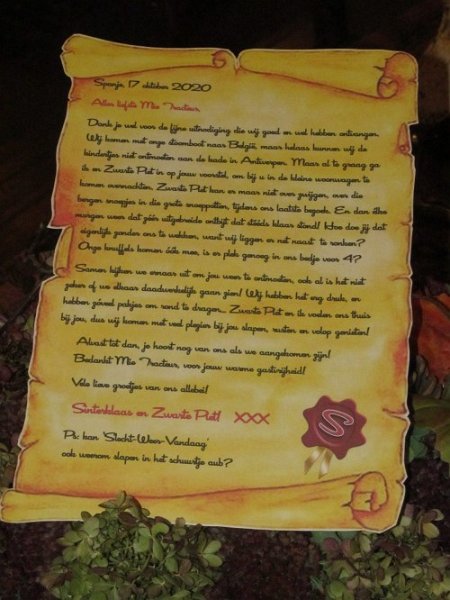 Spanje, 17 oktober 2020
Alles liefste Mie Tracteur,
Dank je wel voor de fijne uitnodiging die wij goed en wel hebben ontvangen.
Wij komen met onze stoomboot naar België, maar helaas kunnen wij de
kindertjes niet ontmoeten aan de kade in Antwerpen. Maar al te graag ga
ik en Zwarte Piet in op jouw voorstel, om bij u in de kleine woonwagen te
komen overnachten. Zwarte Piet kan er maar niet over zwijgen, over die
bergen snoepjes in die grote snoeppotten, tijdens ons laatste bezoek. En dan elke
morgen weer dat géén uitgebreide ontbijt dat stééds klaar stond! Hoe doe jij dat
eigenlijk zonder ons te wekken, want wij liggen er net naast te ronken?
Onze knuffels komen óók mee, is er plek genoeg in ons bedje voor 4?
Samen kijken we ernaar uit om jou weer te ontmoeten, ook al is het niet
zeker of we elkaar daadwerkelijk gaan zien! Wij hebben het erg druk, en
hebben zóveel pakjes om rond te dragen... Zwarte Piet en ik voelen ons thuis
bij jou, dus wij komen met veel plezier bij jou slapen, rusten en volop genieten!
Alvast tot dan, je hoort nog van ons als we aangekomen zijn!
Bedankt Mie Tracteur, voor jouw warme gastvrijheid!
Vele lieve groetjes van ons allebei!
Sinterklaas en Zwarte Piet! XXX
S
Ps: kan 'Slecht-Weer-Vandaag'
ook weerom slapen in het schuurtje aub?